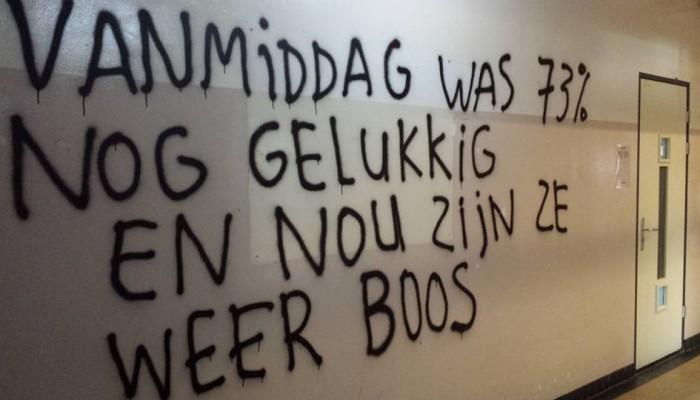 VANMiDDAG WAS 73%
NOG GELUKKiG
EN NOU ZijN ZE
WEER BOOS